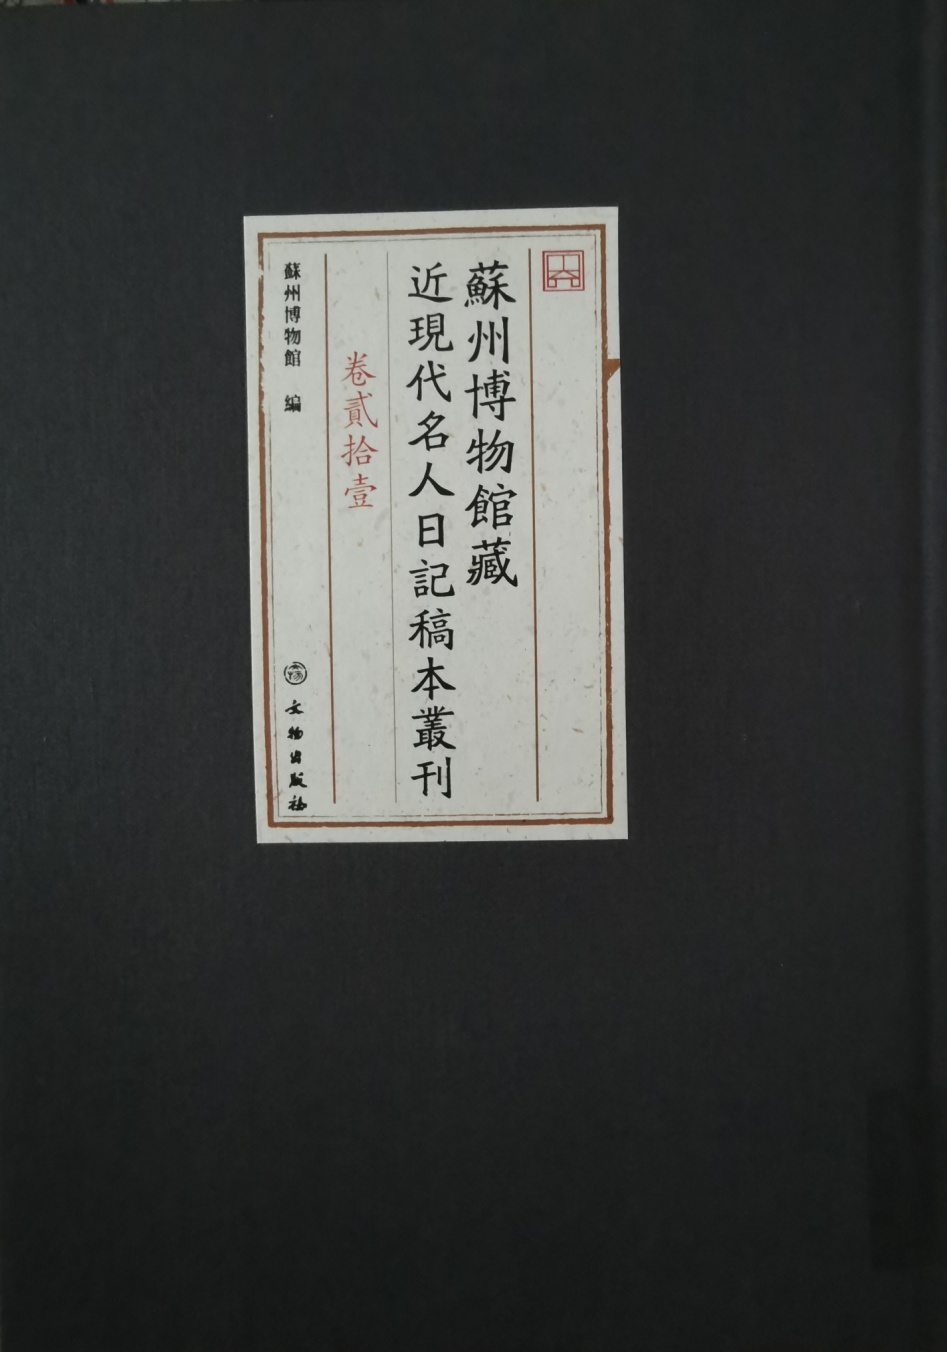 蘇州博物館藏
近現代名人日記稿本叢刊
卷貳拾壹
蘇州博物館 編
文物出版社